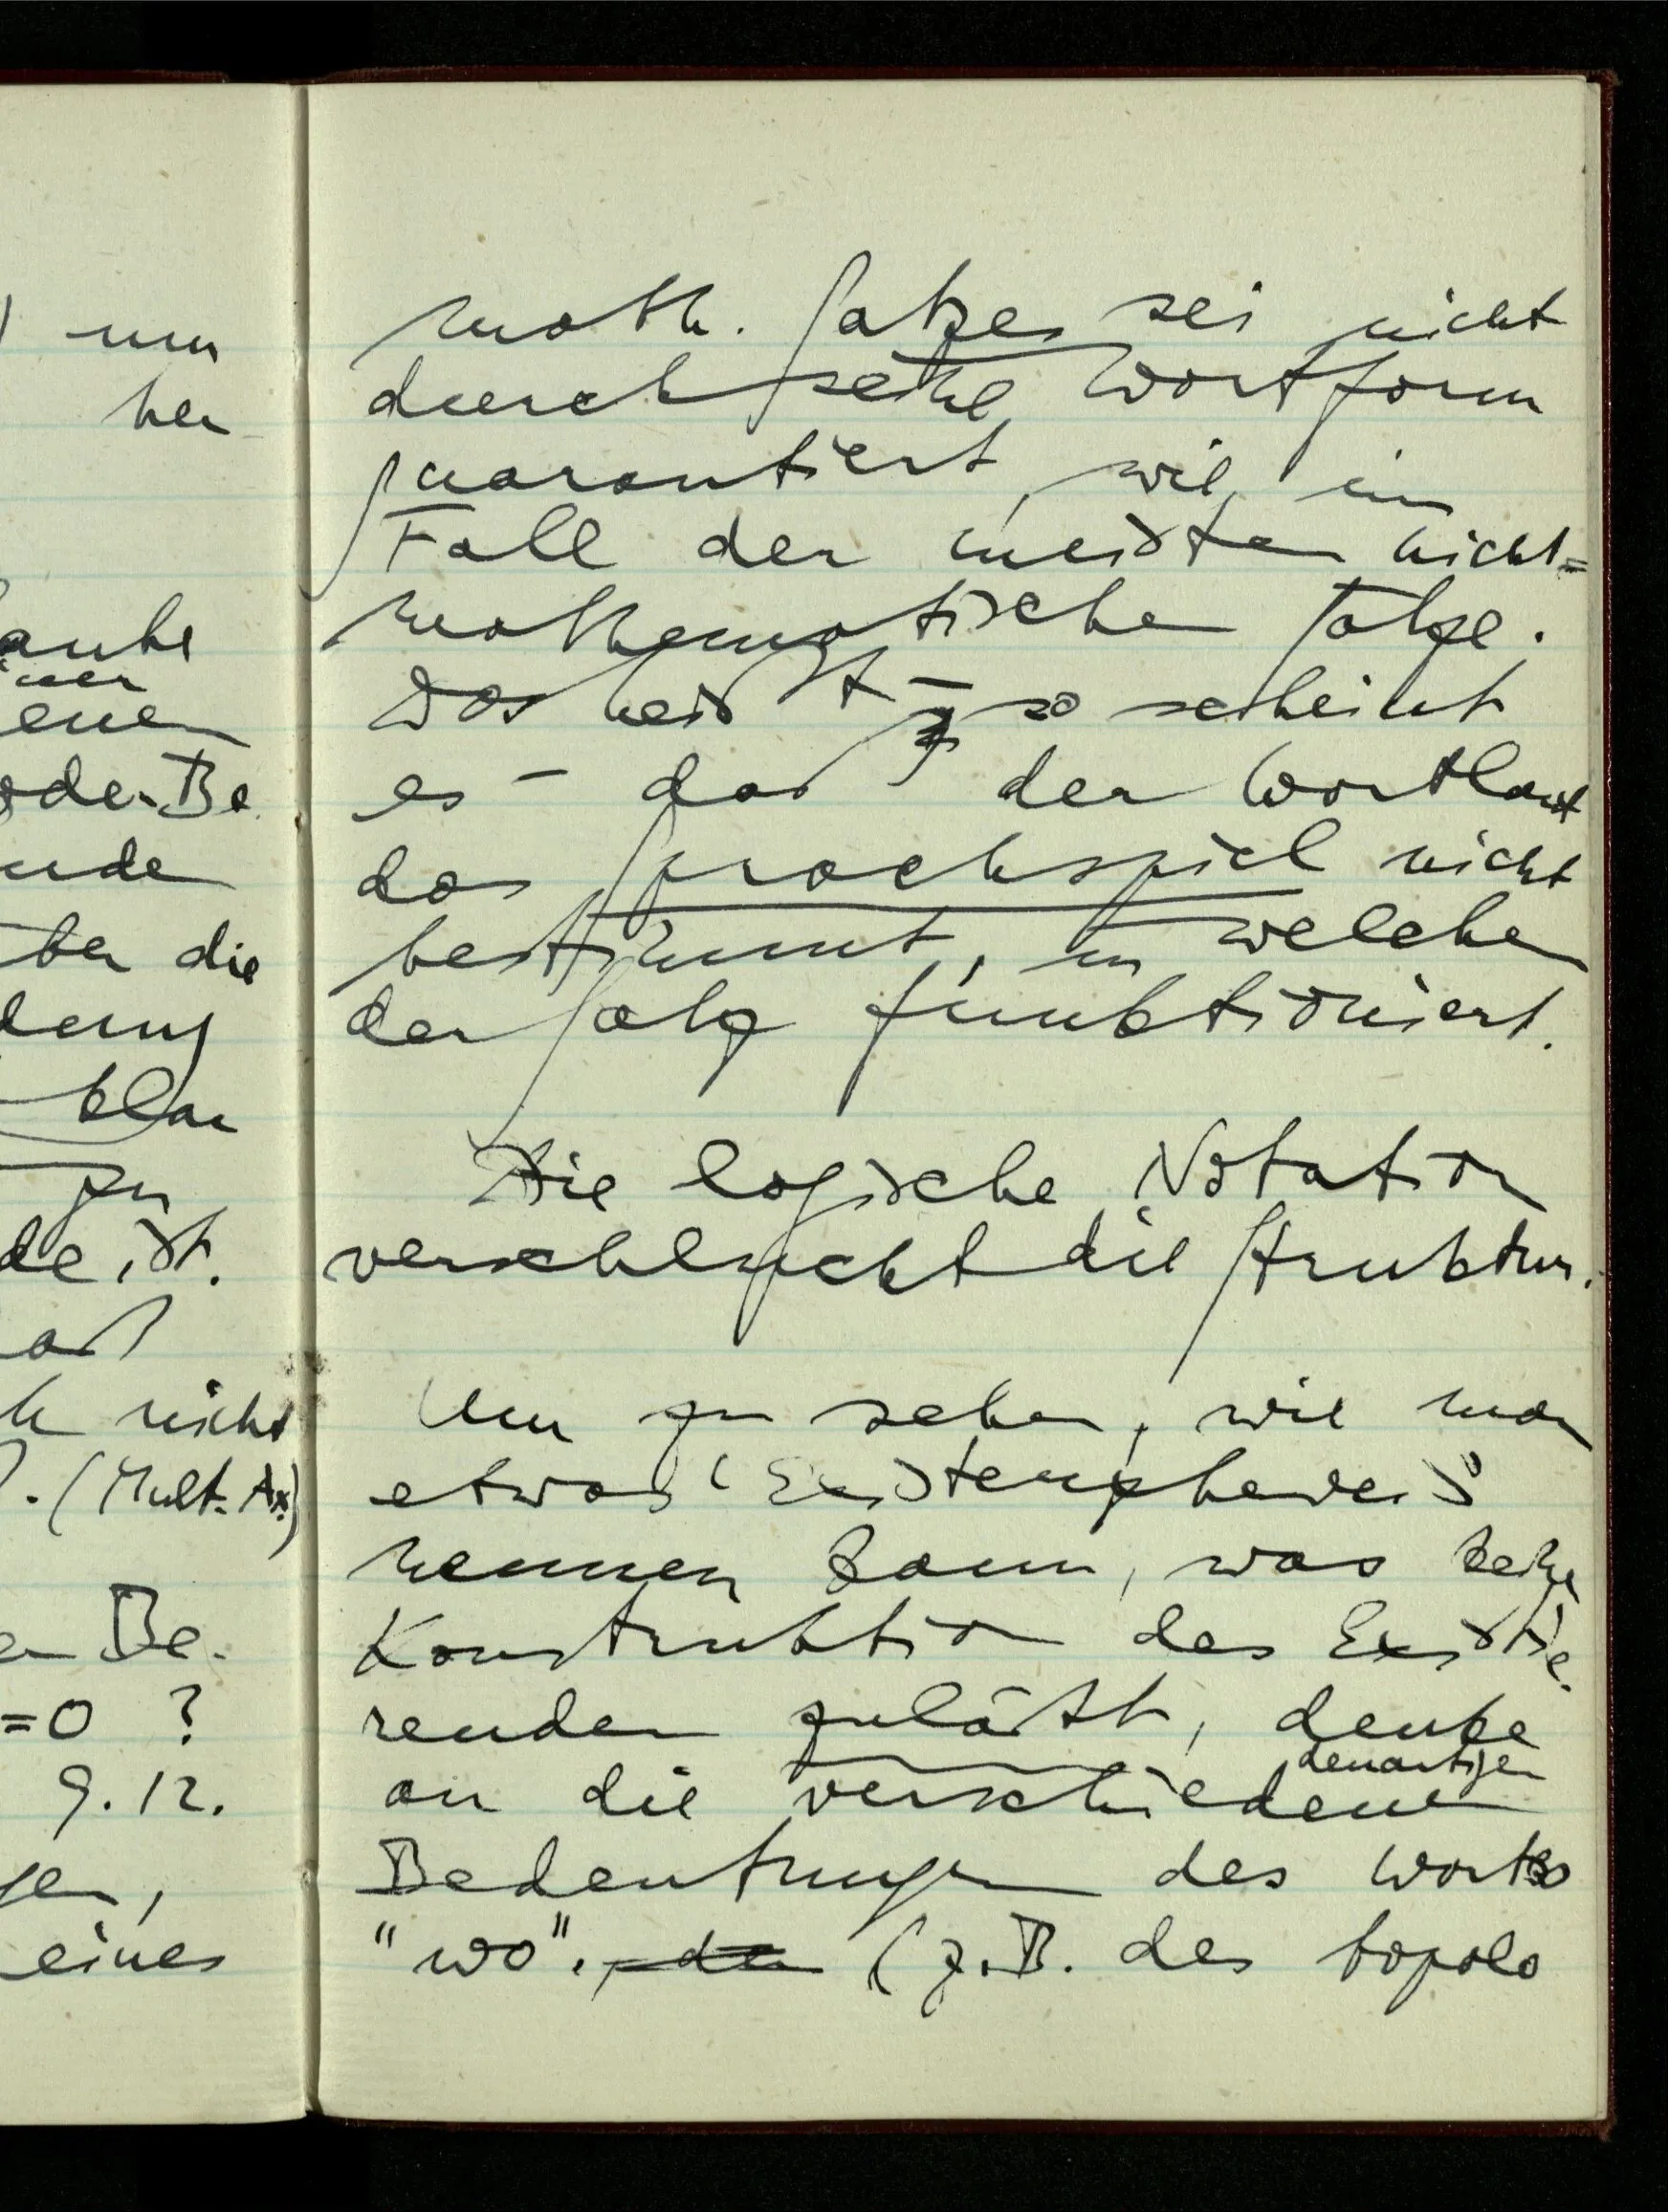 nun
her
aube
ener
oder Be
nde
ber die
dung
klar
zu
de ist.
daß
h nicht
. (Mult. Ax)
Be-
=0 ?
9.12.
gen,
eines
math. Satzes sei nicht
durch seine Wortform
guarantiert, wie im
Fall der meisten nicht=
mathematischen Sätze.
Das heißt – so scheint
es – daß der Wortlaut
das Sprachspiel nicht
bestimmt, in welchem
der Satz funktioniert.
Die logische Notation
verschluckt die Struktur.
Um zu sehen, wie man
etwas ‘Existenzbeweis’
nennen kann, was keine
Konstruktion des Existie-
renden zuläßt, denke
an die verschiedenen
derartigen
Bedeutungen des Wortes
“wo”. (z.B. des topolo